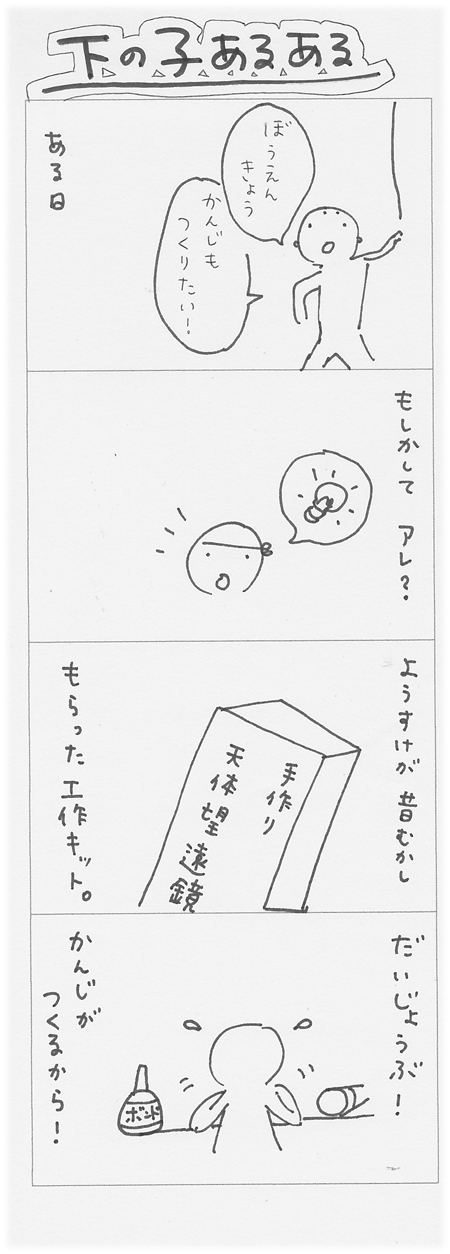 下の子あるある
ある日
ぼうえん
きょう
かんじも
つくりたい!
もしかして アレ?
ようすけが 昔むかし
もらった 工作キット。
手作り
天体望遠鏡
だいじょうぶ!
かんじが
つくるから!
ボンド